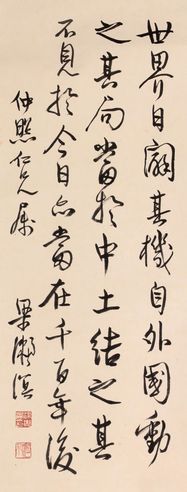 世界日辟其機自外國動
之其局當於中土結之其
不見於今日亦當在千百年後
仲照仁兄屬
梁漱溟